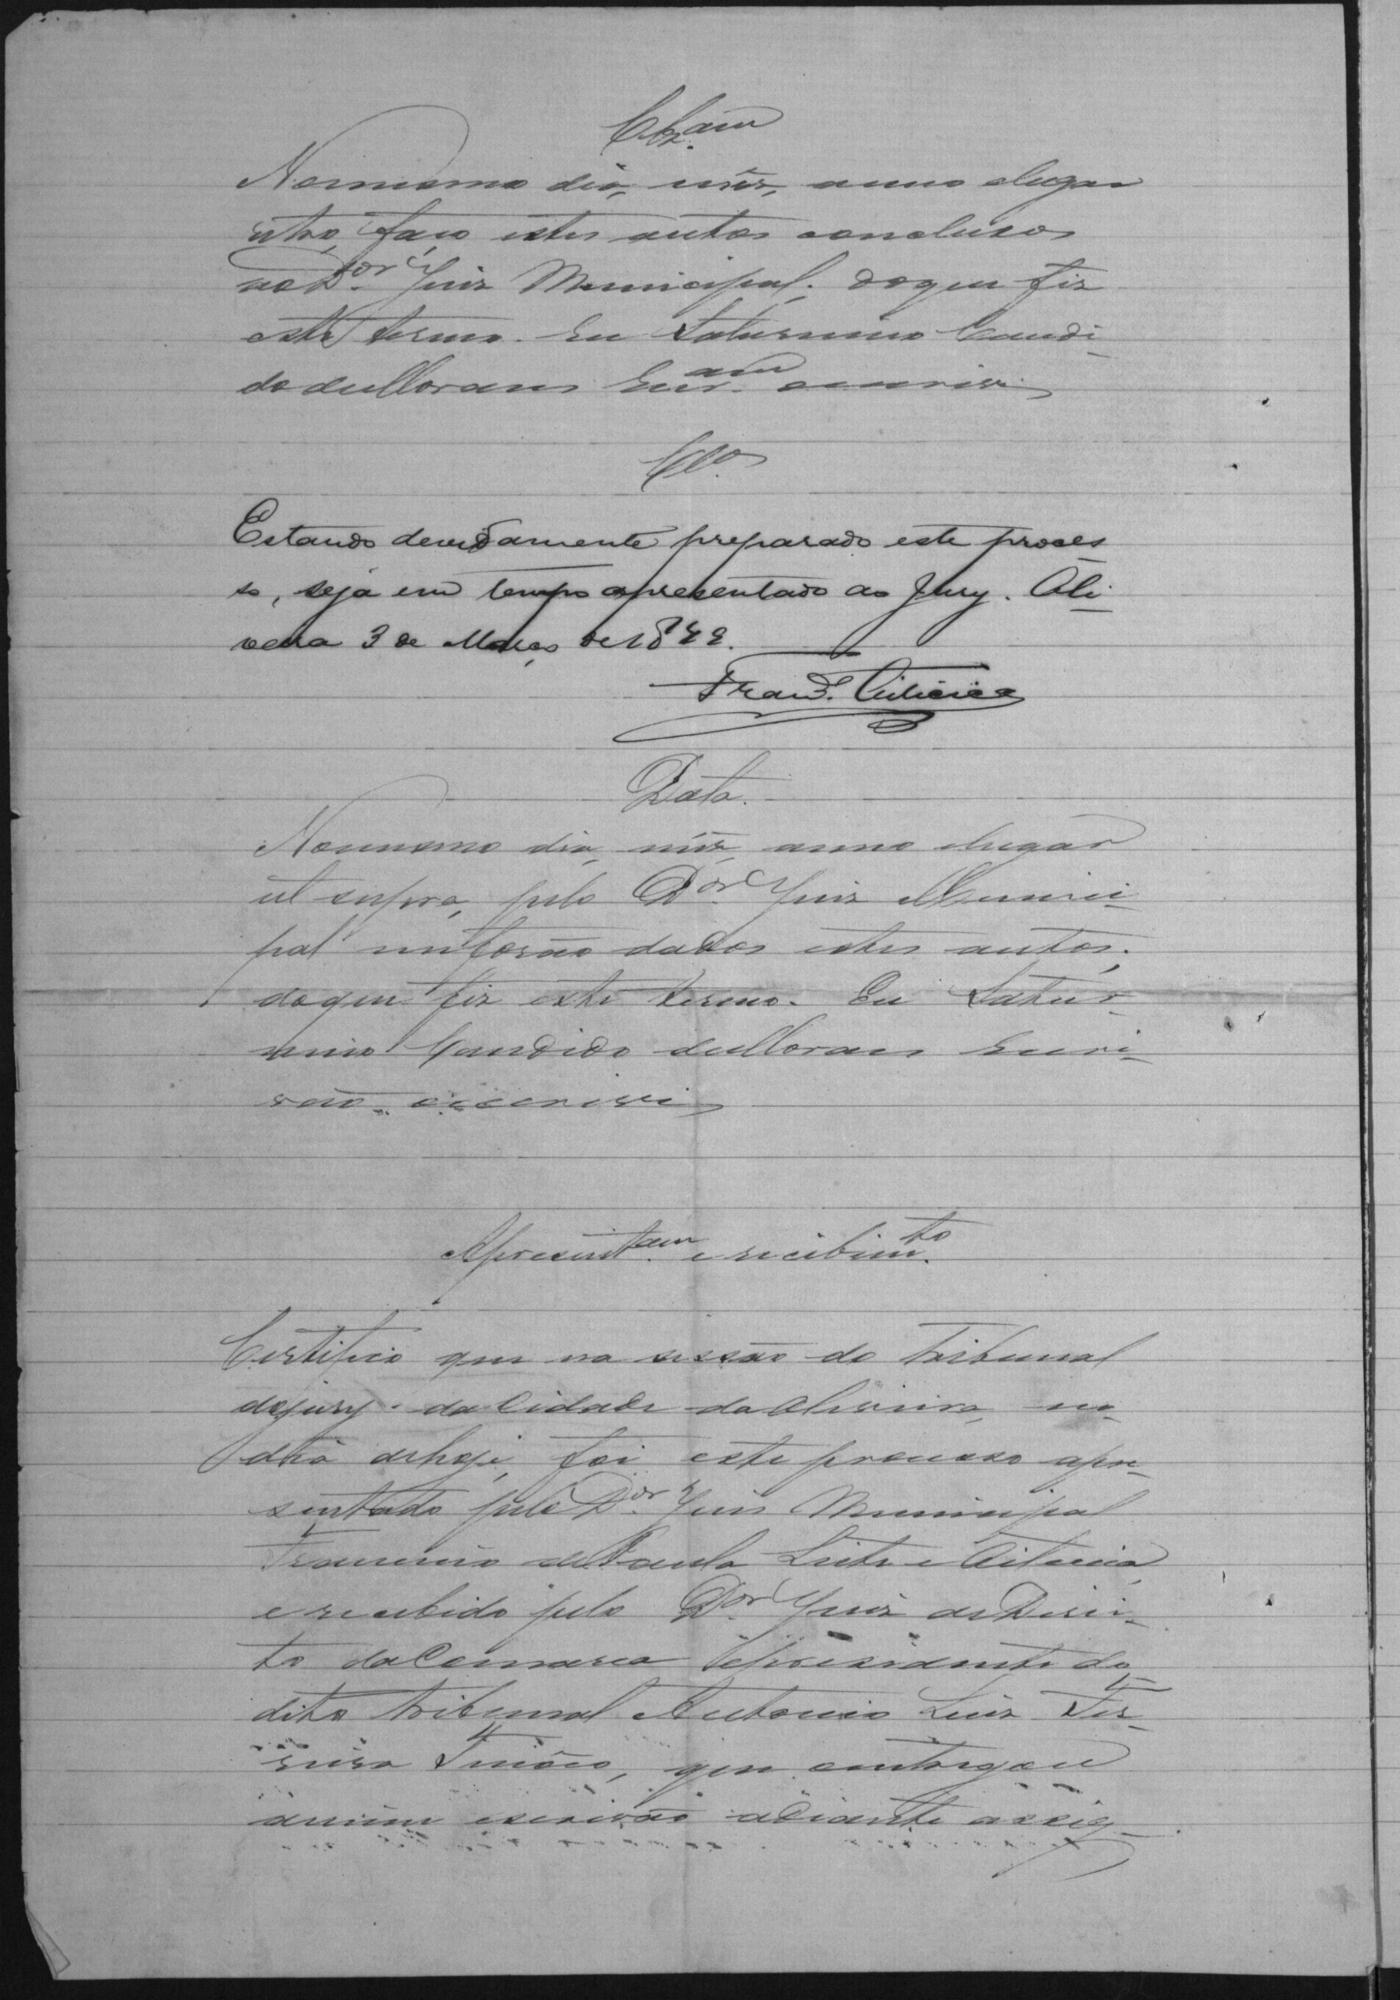 Clz.am
No mesmo dia, mês, anno e lugar
retro, faço estes autos conclusos
ao D.or Juiz Municipal; do que fiz
este termo. Eu Saturnino Candi-
do de Moraes Escr.am o escrevi
Clo.
Estando devidamente preparado este proces
so, seja em tempo apresentado ao Jury. Oli-
veira 3 de Março de 18
Fran.
Data.
No mesmo dia, mês, anno e lugar
ut supra, pelo D.or Juiz Munici-
pal me forão dados estes autos;
do que fiz este termo. Eu Satur-
nino Candido de Moraes Escri-
vão o escrevi
Apresent.am e recebim.to
Certifico que na sessão do Tribunal
do jury da Cidade da Oliveira, no
dia de hoje, foi este processo apre-
sentado pelo D.or Juiz Municipal
Francisco de Paula Leite e Oiticica,
e recebido pelo D.or Juiz de Direi-
to da Comarca e presidente do
dito tribunal Antonio Luiz Fer-
reira Tinôco, que entregou
a mim escrivão adiante assig-